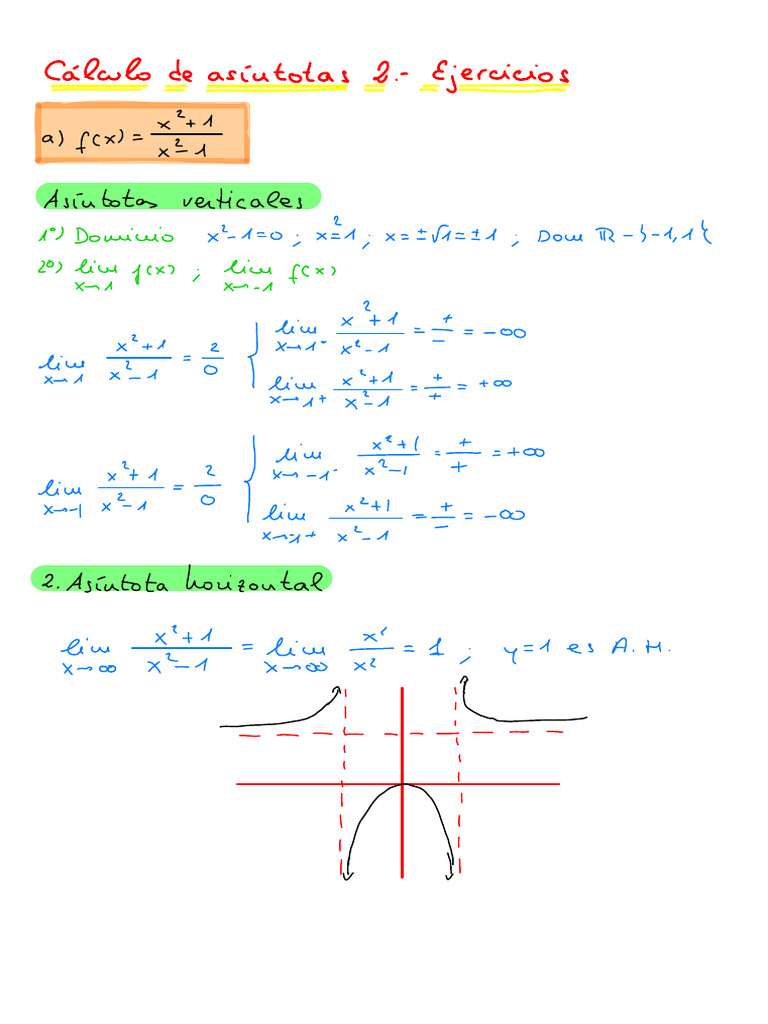 Cálculo de asíntotas 2.- Ejercicios
a) f(x) = (x²+1)/(x²-1)
Asíntotas verticales
1º) Dominio x²-1=0 ; x²=1 ; x=±√1=±1 ; Dom ℝ-}-1,1{
2º) lim x→1 f(x) ; lim x→-1 f(x)
lim x→1⁻ (x²+1)/(x²-1) = +/- = -∞
lim x→1 (x²+1)/(x²-1) = 2/0 {
lim x→1+ (x²+1)/(x²-1) = +/+ = +∞
lim x→-1⁻ (x²+1)/(x²-1) = +/+ = +∞
lim x→-1 (x²+1)/(x²-1) = 2/0 {
lim x→-1+ (x²+1)/(x²-1) = +/- = -∞
2. Asíntota horizontal
lim x→∞ (x²+1)/(x²-1) = lim x→∞ x²/x² = 1 ; y=1 es A.H.